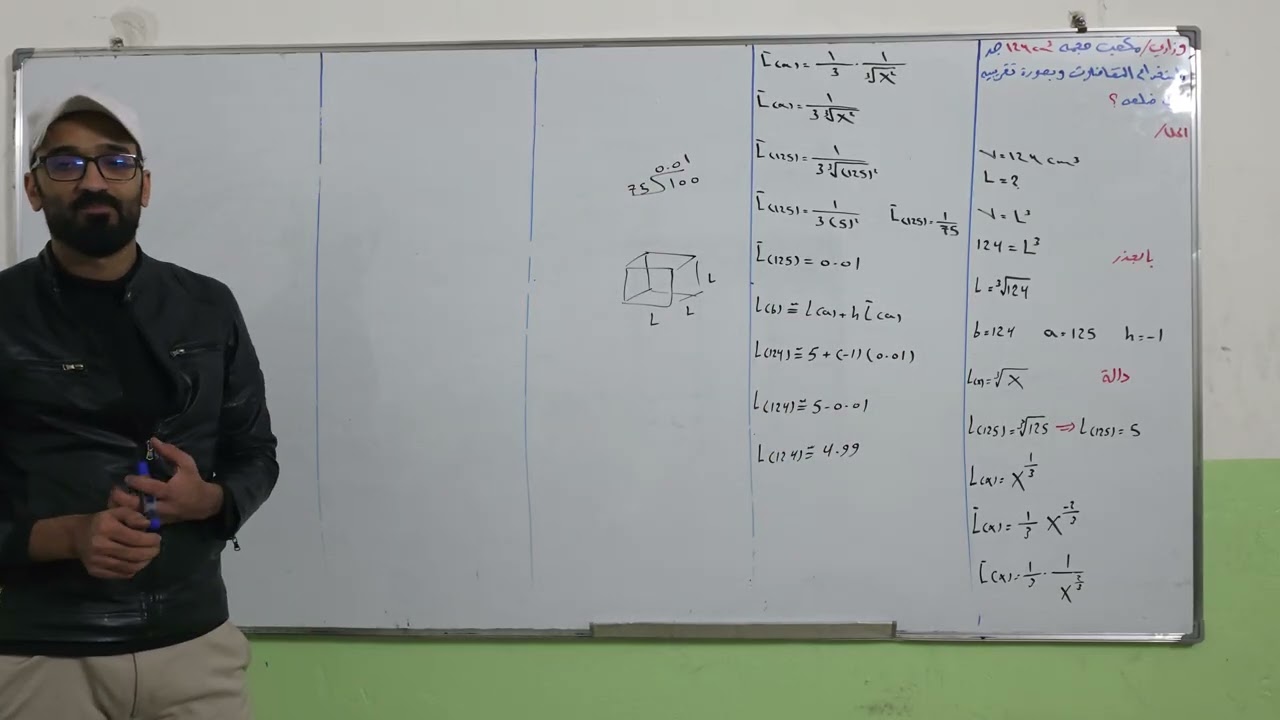 وزاري/ مكعب حجمه 124 cm³ جد
باستخدام التفاضلات وبصورة تقريبية
ضلعه؟
الحل/
V=124 cm³
L=?
V=L³
124=L³ بالجذر
L=∛124
b=124 a=125 h=-1
L(x)=∛X دالة
L(125)=∛125 ⇒ L(125)=5
L(x)=X^(1/3)
L̄(x)=1/3 X^(-2/3)
L̄(x)=1/3 · 1/X^(2/3)
L̄(x)=1/3 · 1/∛X²
L̄(x)=1/(3∛X²)
L̄(125)=1/(3∛(125)²)
L̄(125)=1/(3(5)²) L̄(125)=1/75
L̄(125)=0.01
L(b)≅L(a)+hL̄(a)
L(124)≅5+(-1)(0.01)
L(124)≅5-0.01
L(124)≅4.99
0.01
75 100
L
L
L